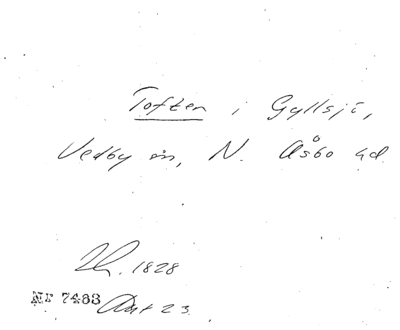 Toften i Gyllsjö,
Vedby sn, N. Åsbo hd
1828
Nr 7483 Ant 23